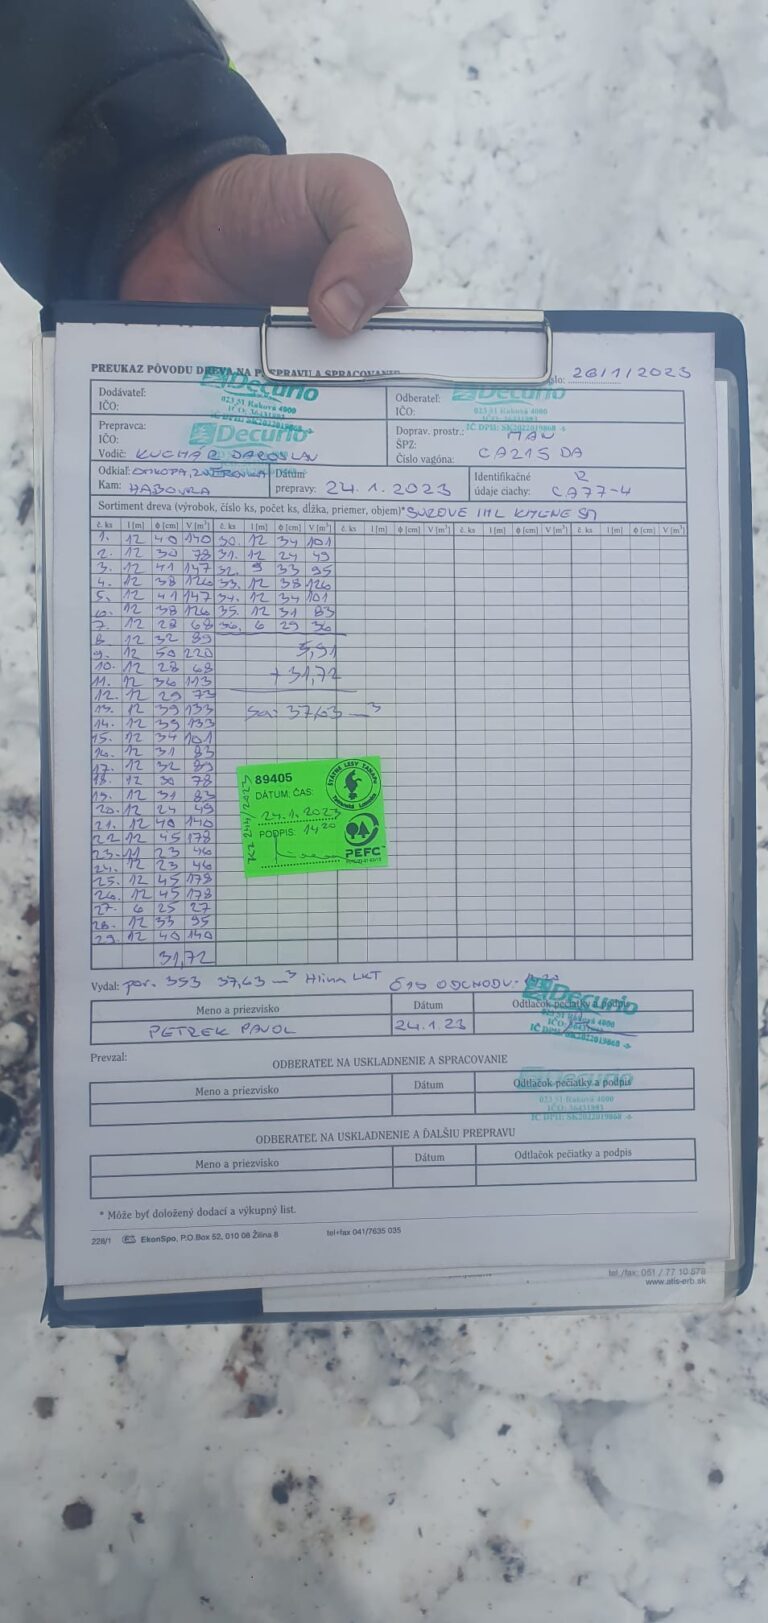 PREUKAZ PÔVODU DREVA NA PREPRAVU A SPRACOVANIE
26/1/2023
Dodávateľ:
IČO:
Decurio
023 51 Raková 4000
IČO: 36431893
IČ DPH: SK2022019868
Odberateľ:
IČO:
Decurio
023 51 Raková 4000
IČ DPH: SK2022019868
Prepravca:
IČO:
Decurio
Vodič: KUCHÁR JAROSLAV
Doprav. prostr.: MAN
ŠPZ: CA215 DA
Číslo vagóna:
Odkiaľ:
Kam: HABOVKA
Dátum
prepravy: 24.1.2023
Identifikačné
údaje ciachy: CA77-4
Sortiment dreva (výrobok, číslo ks, počet ks, dĺžka, priemer, objem)*
č. ks l [m] ϕ [cm] V [m³] č. ks l [m] ϕ [cm] V [m³] č. ks l [m] ϕ [cm] V [m³] č. ks l [m] ϕ [cm] V [m³] č. ks l [m] ϕ [cm] V [m³]
1. 12 40 140 30. 12 34 101
2. 12 30 78 31. 12 24 49
3. 12 41 147 32. 9 33 95
4. 12 38 126 33. 12 38 126
5. 12 41 147 34. 12 34 101
6. 12 38 126 35. 12 31 83
7. 12 28 68 36. 6 29 36
8 12 32 89
9. 12 50 220 5,91
10. 12 28 68
11. 12 36 113 +31,72
12. 12 29 73
13. 12 39 133 37,63 m³
14. 12 39 133
15. 12 34 101
16. 12 31 83
17. 12 32 89
18. 12 30 78
19. 12 31 83
20. 12 24 49
21. 12 40 140
22 12 45 178
23. 11 23 46
24. 12 23 46
25. 12 45 178
26. 12 45 178
27. 6 25 27
28. 12 33 95
29. 12 40 140
31,72
89405
DÁTUM, ČAS:
24.1.2023
PODPIS: 14 20
ŠTÁTNE LESY TANAPU
PEFC
Vydal: por. 353 37,63 m³ Hlina LKT ČAS ODCHODU:
Meno a priezvisko Dátum Odtlačok pečiatky a podpis
PETREK PAVOL 24.1.23
Decurio
023 51 Raková 4000
IČ DPH: SK2022019868
Prevzal:
ODBERATEĽ NA USKLADNENIE A SPRACOVANIE
Meno a priezvisko Dátum Odtlačok pečiatky a podpis
023 51 Raková 4000
IČO: 36431893
IČ DPH: SK2022019868
ODBERATEĽ NA USKLADNENIE A ĎALŠIU PREPRAVU
Meno a priezvisko Dátum Odtlačok pečiatky a podpis
* Môže byť doložený dodací a výkupný list.
228/1 EkonSpo, P.O.Box 52, 010 08 Žilina 8 tel+fax 041/7635 035
tel./fax: 051 / 77 10 578
www.atis-erb.sk